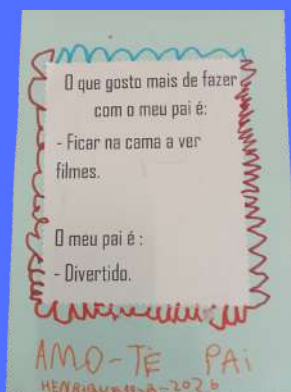 O que gosto mais de fazer
com o meu pai é:
- Ficar na cama a ver
filmes.
O meu pai é :
- Divertido.
AMO-TE PAi